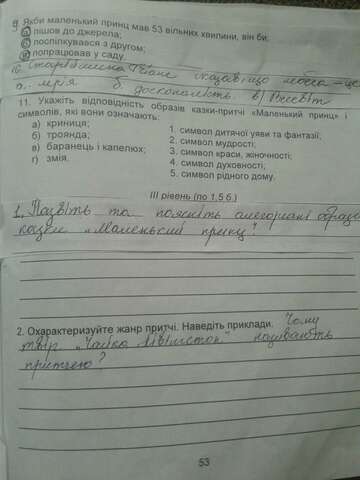 9. Якби маленький принц мав 53 вільних хвилини, він би:
а) пішов до джерела;
б) поспілкувався з другом;
в) попрацював у саду.
10. Старійшина Чіанг сказав, що мова – це
а. мрія б. досконалість в) Всесвіт
11. Укажіть відповідність образів казки-притчі «Маленький принц» і
символів, які вони означають:
а) криниця;
б) троянда;
в) баранець і капелюх;
г) змія.
1. символ дитячої уяви та фантазії;
2. символ мудрості;
3. символ краси, жіночності;
4. символ духовності;
5. символ рідного дому.
III рівень (по 1,5 б.)
1. Назвіть та поясніть алегоричні образи
казки „Маленький принц"!
2. Охарактеризуйте жанр притчі. Наведіть приклади. Чому
твір „Чайка Лівінгстон" називають
притчею?
53